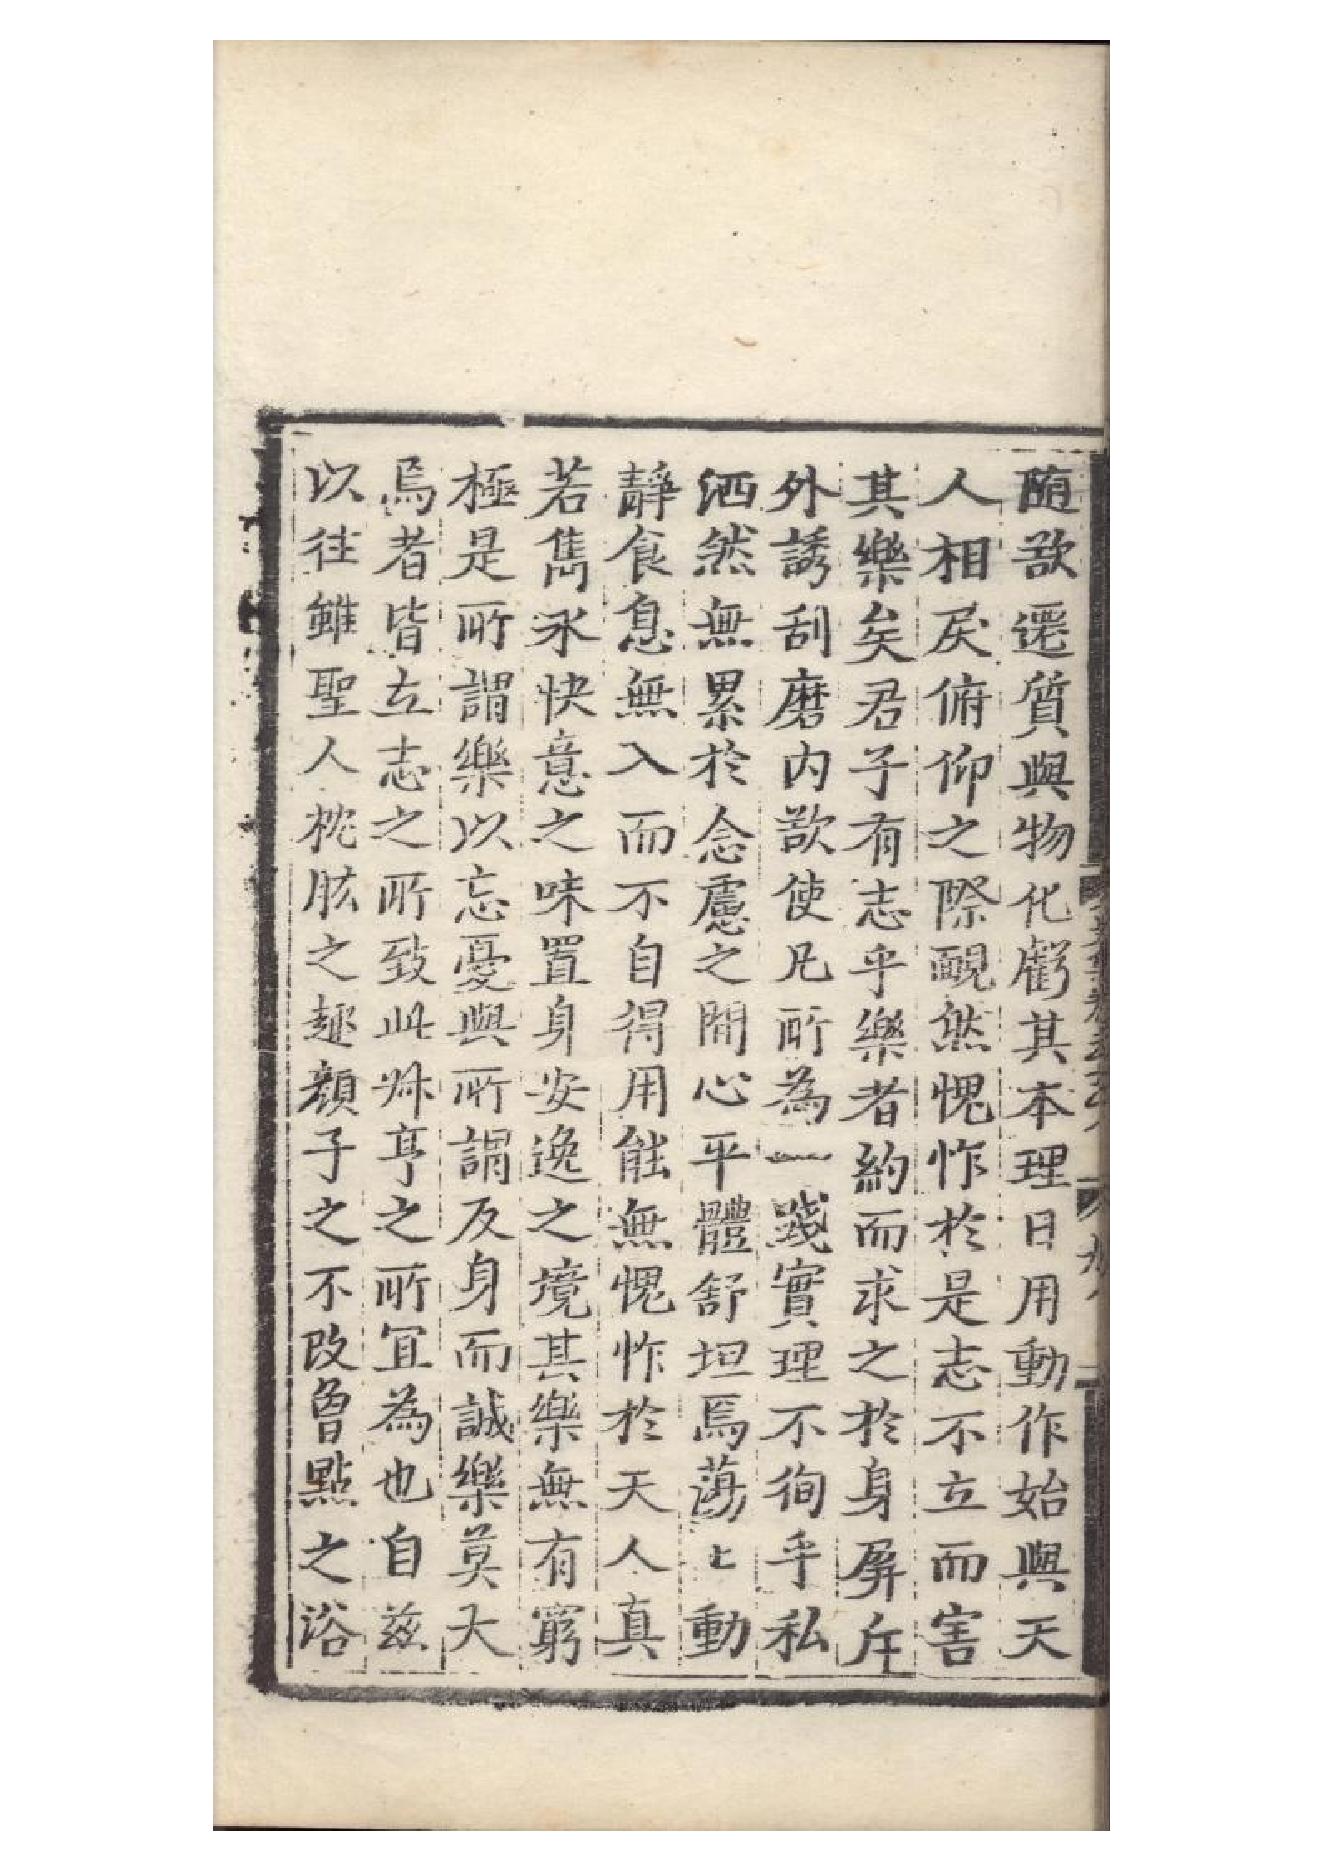 随欲遷質與物化虧其本理日用動作始與天
人相戾俯仰之際靦然愧怍於是志不立而害
其樂矣君子有志乎樂者約而求之於身屏斥
外誘刮磨内欲使凡所為一踐實理不徇乎私
洒然無累於念慮之間心平體舒坦焉蕩〻動
靜食息無入而不自得用能無愧怍於天人真
若雋永快意之味置身安逸之境其樂無有窮
極是所謂樂以忘憂與所謂反身而誠樂莫大
焉者皆立志之所致此叔亨之所冝為也自兹
以往雖聖人枕肱之趣顔子之不改曾點之浴